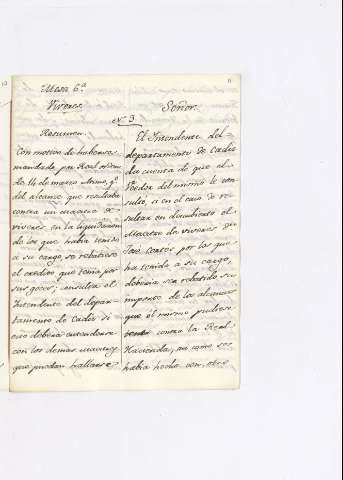 Mesa 6.a
Viveres.
Resumen
Con motivo de haberse
mandado, por Real orden
de 14 de marzo último, q.e
del alcance que resultaba
contra un maestre de
viveres en la liquidacion
de los que habia tenido
a su cargo, se rebatiese
el credito que tenia por
sus goces; consulta el
Intendente del depar-
tamento de Cadiz si
esto deberia entenderse
con los demas maestres
que puedan hallarse
N. 3.
Señor.
El Intendente del
departamento de Cadiz
da cuenta de que el
Veedor del mismo le con
sultó, si en el caso de re-
sultar en descubierto el
Maestre de viveres D.n
José Cortés por los que
ha tenido a su cargo,
deberia ser rebatido su
importe de los alcances
que el mismo pudiere
tener contra la Real
Hacienda, asi como se
habia hecho con otro